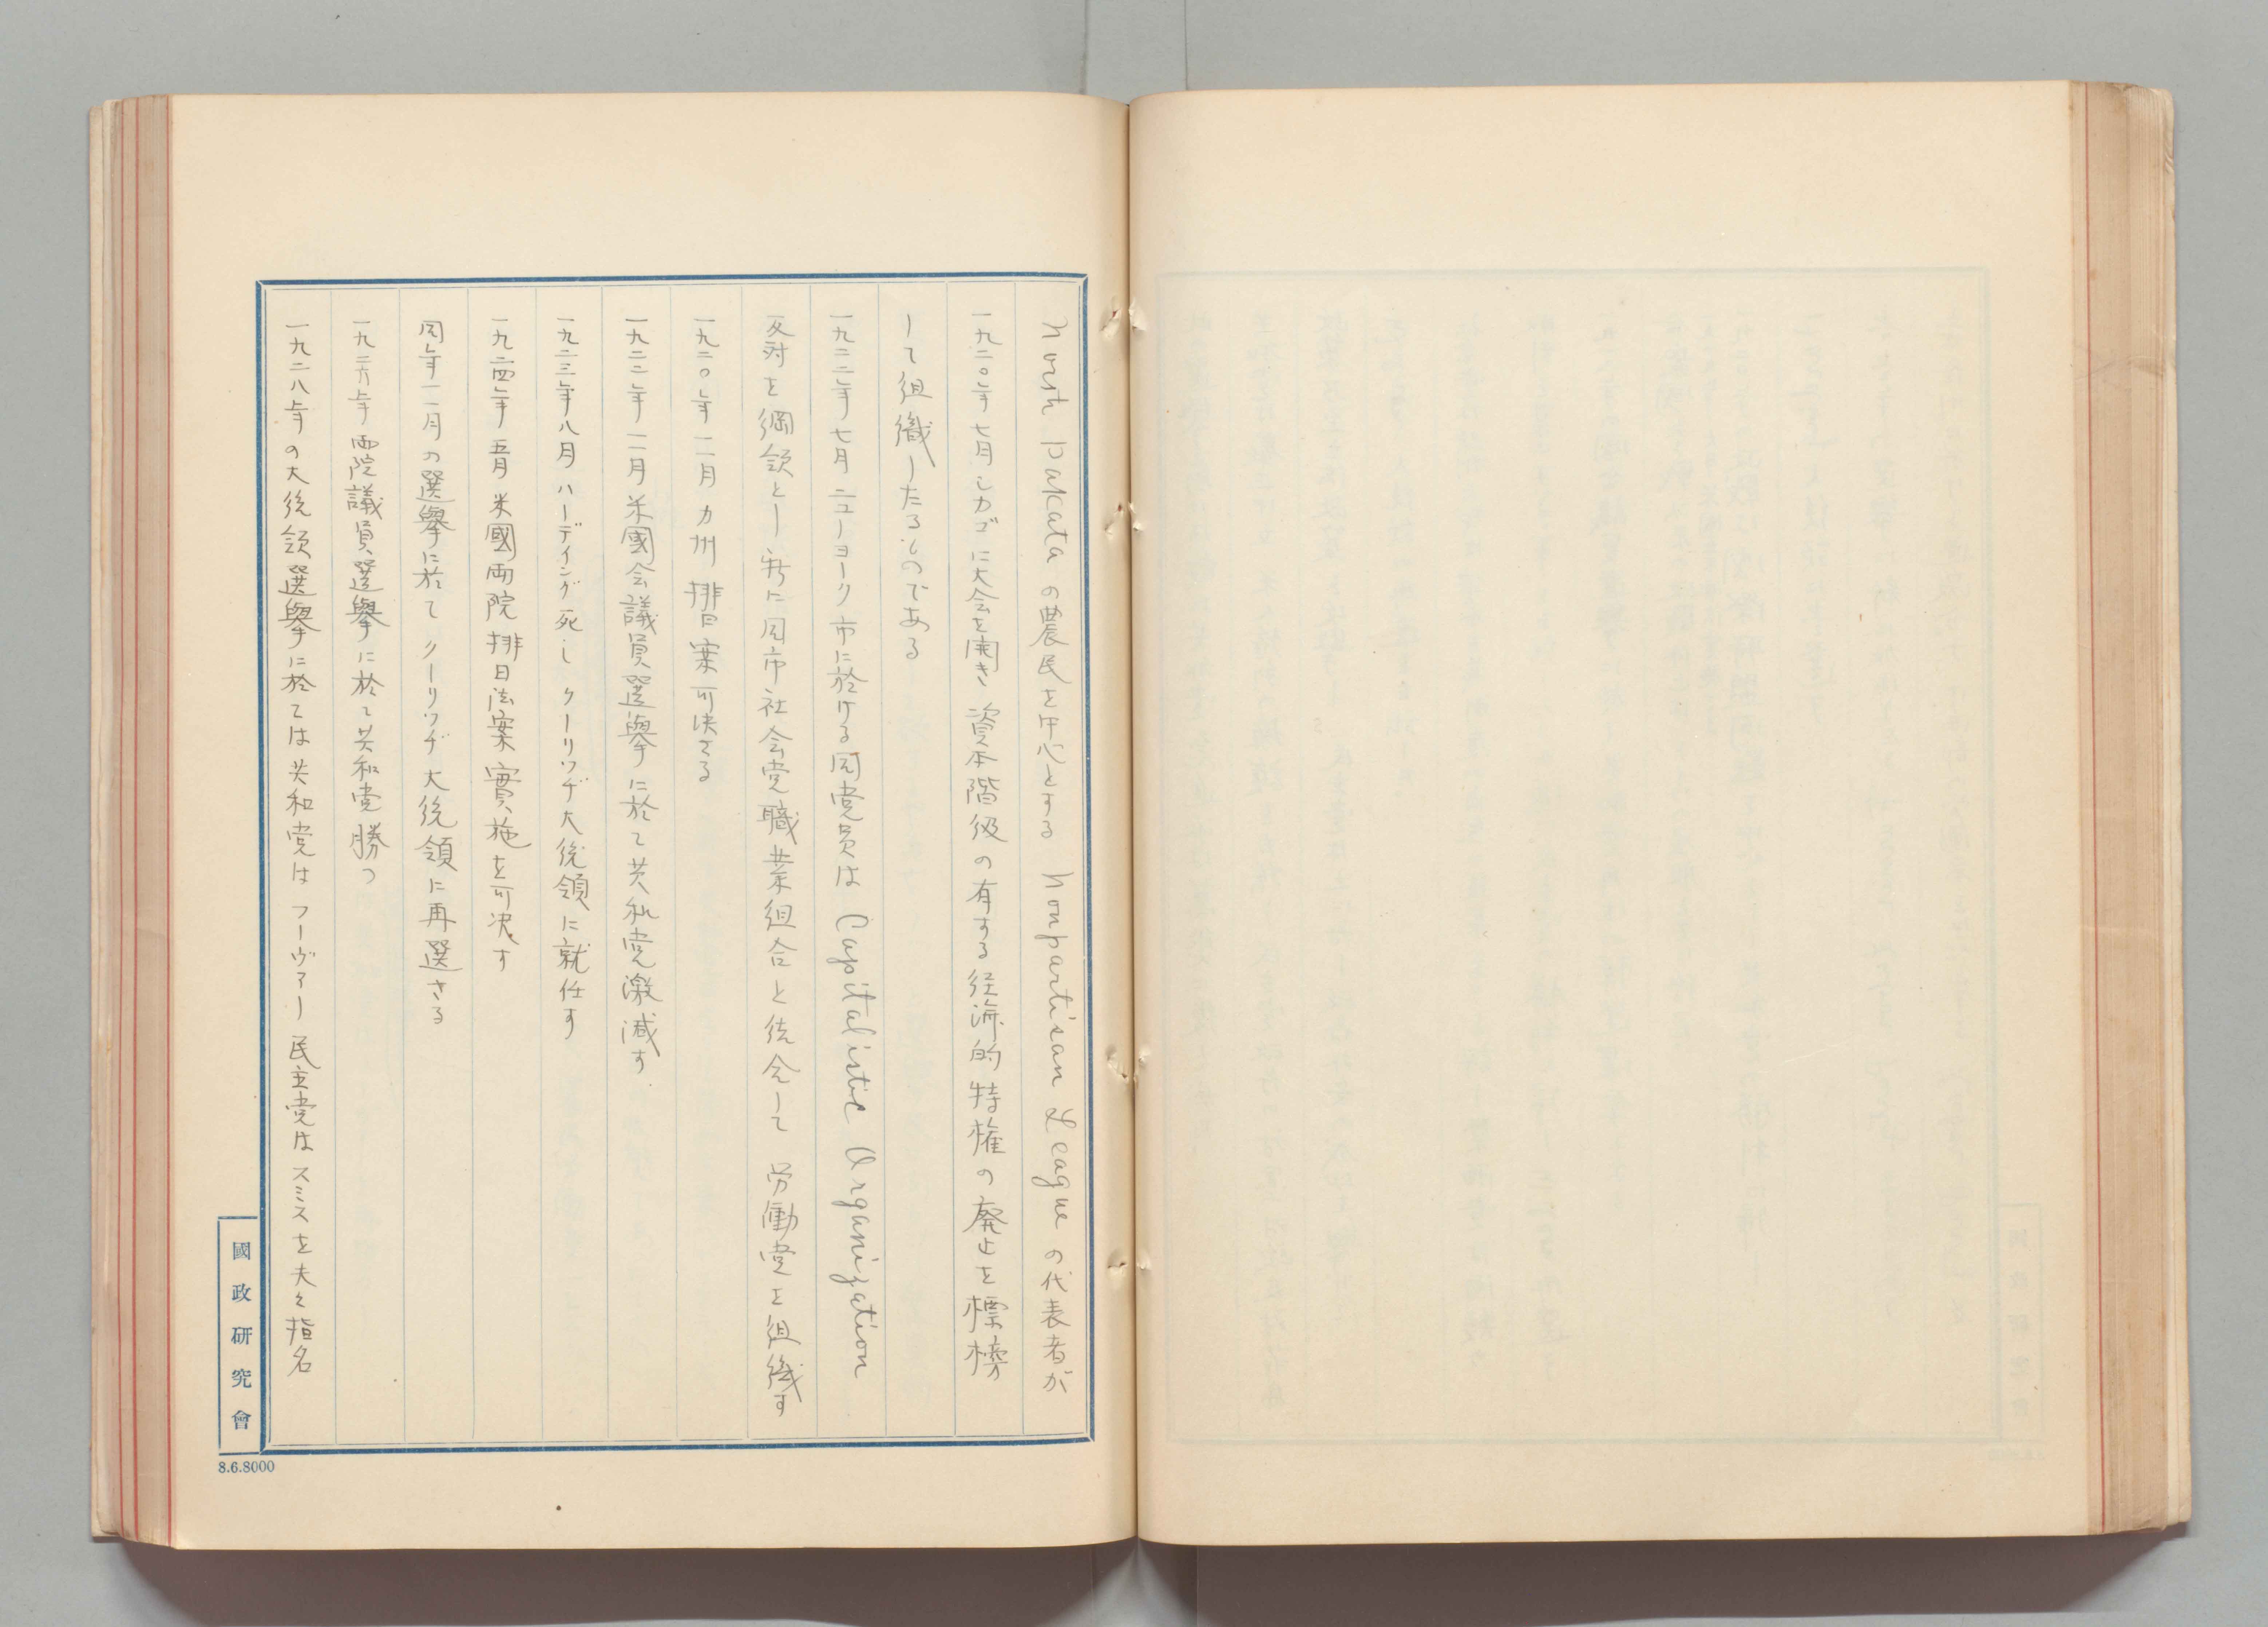 North Dakataの農民を中心とする Nonpartisan Leagueの代表者が
一九二〇年七月シカゴに大会を開き資本階級の有する経済的特権の廃止を標榜
して組織したるものである
一九二二年七月ニューヨーク市に於ける同党員は Capitalistic Organization
反対を綱領とし新に同市社会党職業組合と結合して労働党を組織す
一九二〇年一一月カ州排日案可決さる
一九二二年一一月米國会議員選擧に於て共和党激減す
一九二三年八月ハーディング死しクーリッヂ大統領に就任す
一九二四年五月米國両院排日法案實施を可決す
同年一一月の選擧に於てクーリッヂ大統領に再選さる
一九二六年両院議員選擧に於て共和党勝つ
一九二八年の大統領選擧に於ては共和党はフーヴァー民主党はスミスを夫々指名
國政研究會
8.6.8000